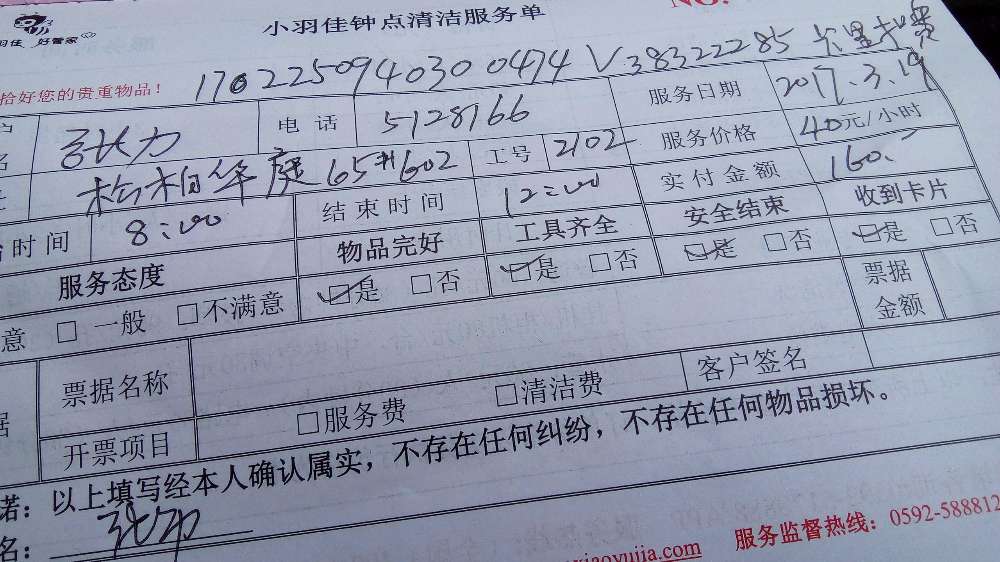 小羽佳钟点清洁服务单
NO.
羽佳 好管家
拾好您的贵重物品！ 170225094030 0474 V38322285 卡里扣费
名 张力 电话 5128766 服务日期 2017.3.19
松柏华庭65#602 工号 2102 服务价格 40元/小时
时间 8:00 结束时间 12:00 实付金额 160.-
服务态度 物品完好 工具齐全 安全结束 收到卡片
意 □一般 □不满意 ☑是 □否 ☑是 □否 ☑是 □否 ☑是 □否
据 票据名称 票据金额
开票项目 □服务费 □清洁费 客户签名
诺：以上填写经本人确认属实，不存在任何纠纷，不存在任何物品损坏。
名：
xiaoyujia.com 服务监督热线：0592-588812